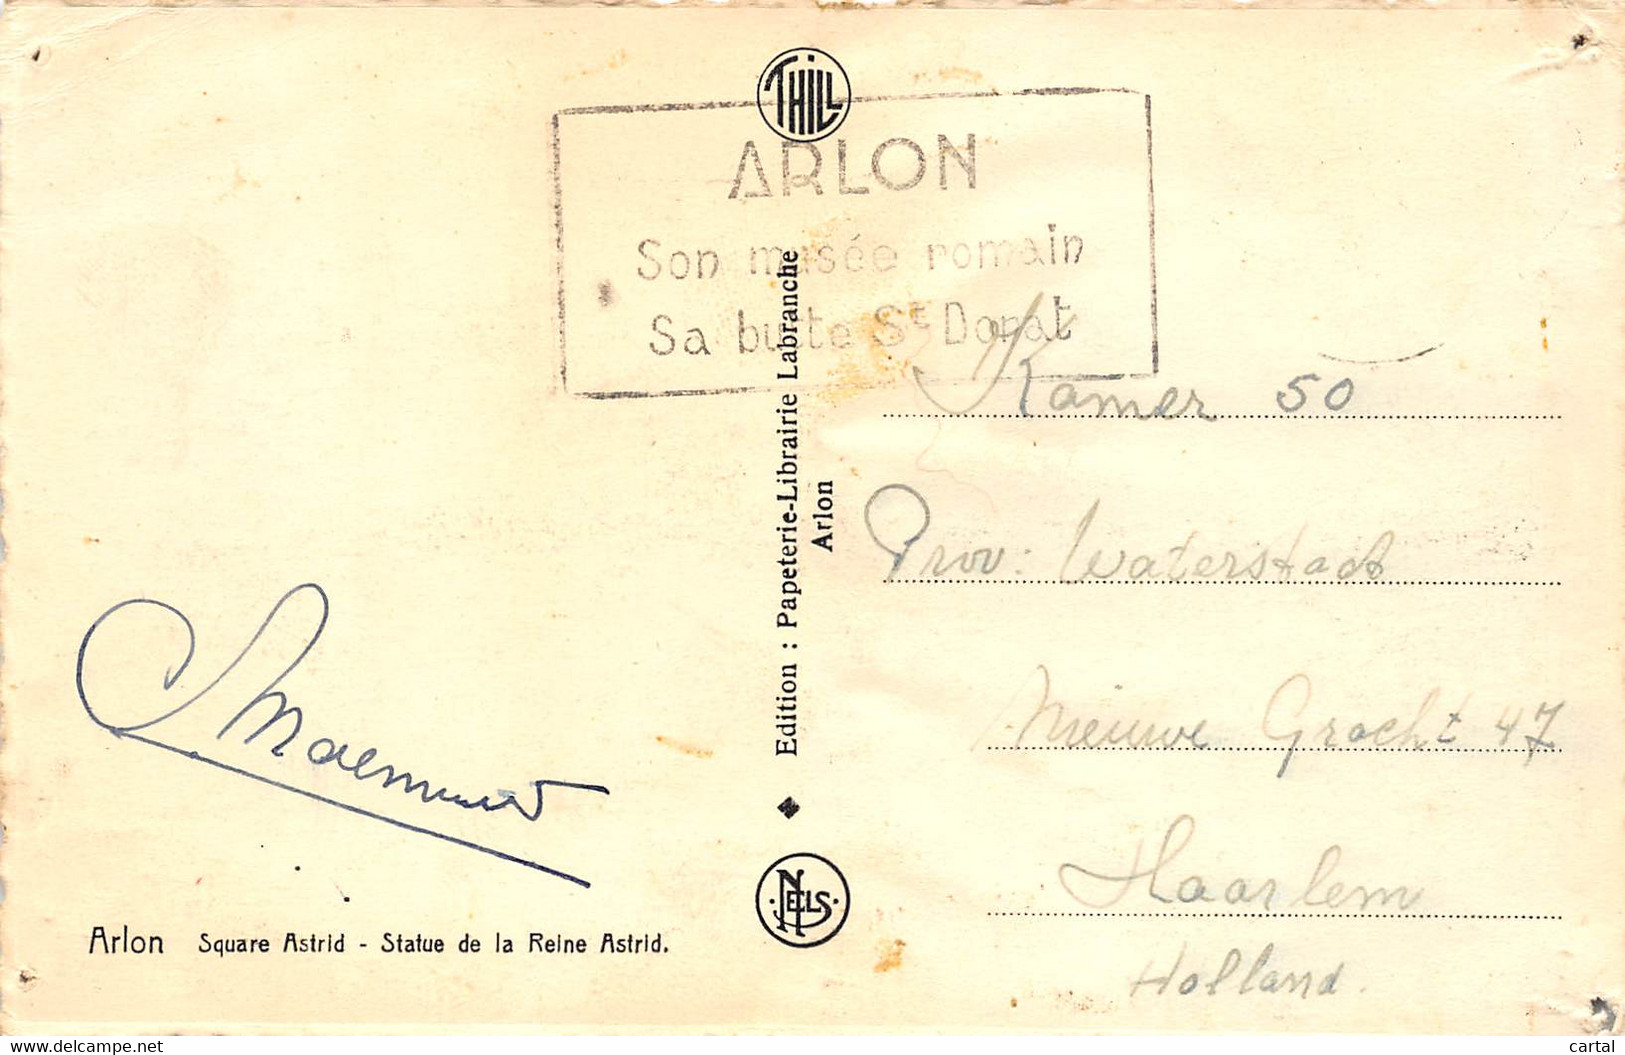 THILL
ARLON
Son musée romain
Sa butte St Donat
Edition : Papeterie-Librairie Labranche
Arlon
NELS
Kamer 50
Prov: Waterstaat
Nieuwe Gracht 47
Haarlem
Holland.
Arlon Square Astrid - Statue de la Reine Astrid.
www.delcampe.net
cartal